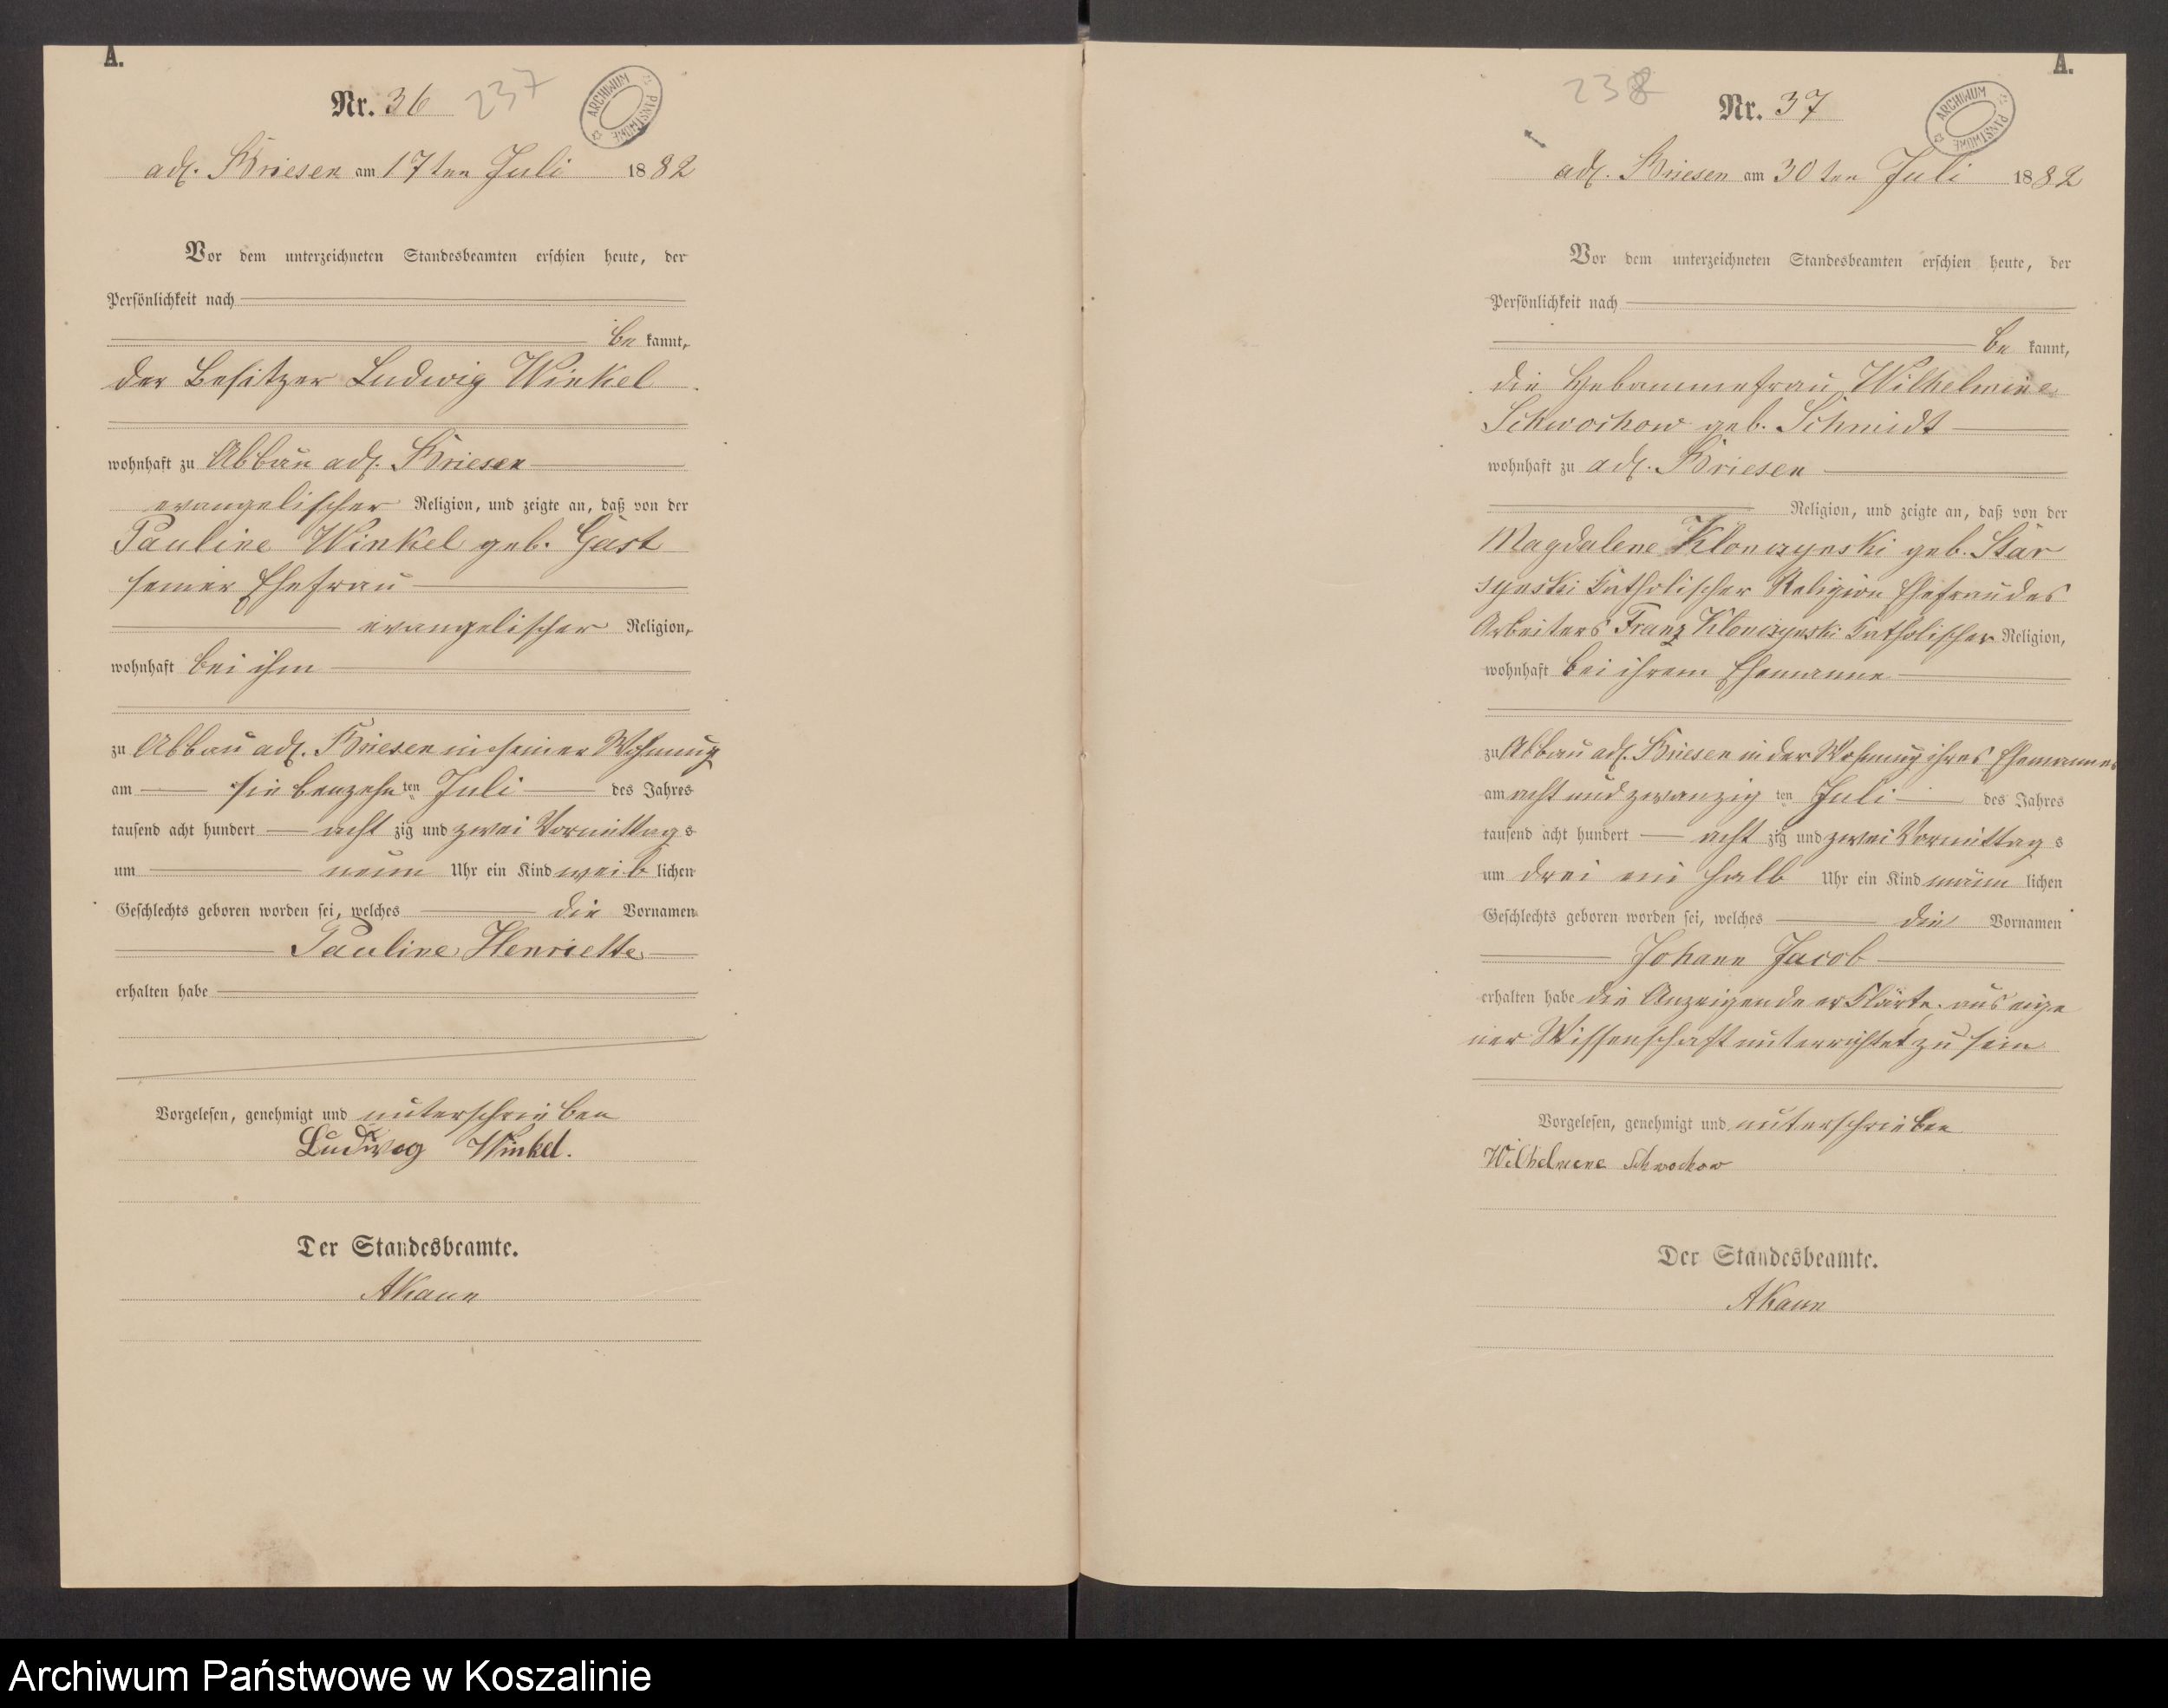 A.
Nr. 36 237
ARCHIWUM PAŃSTWOWE
adl. Briesen am 17ten Juli 1882
Vor dem unterzeichneten Standesbeamten erschien heute, der
Persönlichkeit nach
be kannt,
der Besitzer Ludwig Winkel
wohnhaft zu Abbau adl. Briesen
evangelischer Religion, und zeigte an, daß von der
Pauline Winkel geb. Gast
seiner Ehefrau
evangelischer Religion,
wohnhaft bei ihm
zu Abbau adl. Briesen in seiner Wohnung
am siebenzehn ten Juli des Jahres
tausend acht hundert acht zig und zwei Vormittags
um neun Uhr ein Kind weib lichen
Geschlechts geboren worden sei, welches die Vornamen
Pauline Henriette
erhalten habe
Vorgelesen, genehmigt und unterschrieben
Ludwig Winkel.
Der Standesbeamte.
AKaun
A.
238 Nr. 37
ARCHIWUM PAŃSTWOWE
adl. Briesen am 30ten Juli 1882
Vor dem unterzeichneten Standesbeamten erschien heute, der
Persönlichkeit nach
be kannt,
die Hebammefrau Wilhelmine
Schwochow geb. Schmidt
wohnhaft zu adl. Briesen
Religion, und zeigte an, daß von der
Magdalene Klonczynski geb. Star
synski katholischer Religion Ehefrau des
Arbeiters Franz Klonczynski katholischer Religion,
wohnhaft bei ihrem Ehemanne
zu Abbau adl. Briesen in der Wohnung ihres Ehemannes
am acht und zwanzig ten Juli des Jahres
tausend acht hundert acht zig und zwei Vormittags
um drei ein halb Uhr ein Kind männ lichen
Geschlechts geboren worden sei, welches die Vornamen
Johann Jacob
erhalten habe die Anzeigende erklärte, aus eige
ner Wissenschaft unterrichtet zu sein
Vorgelesen, genehmigt und unterschrieben
Wilhelmene Schwochow
Der Standesbeamte.
AKaun
Archiwum Państwowe w Koszalinie